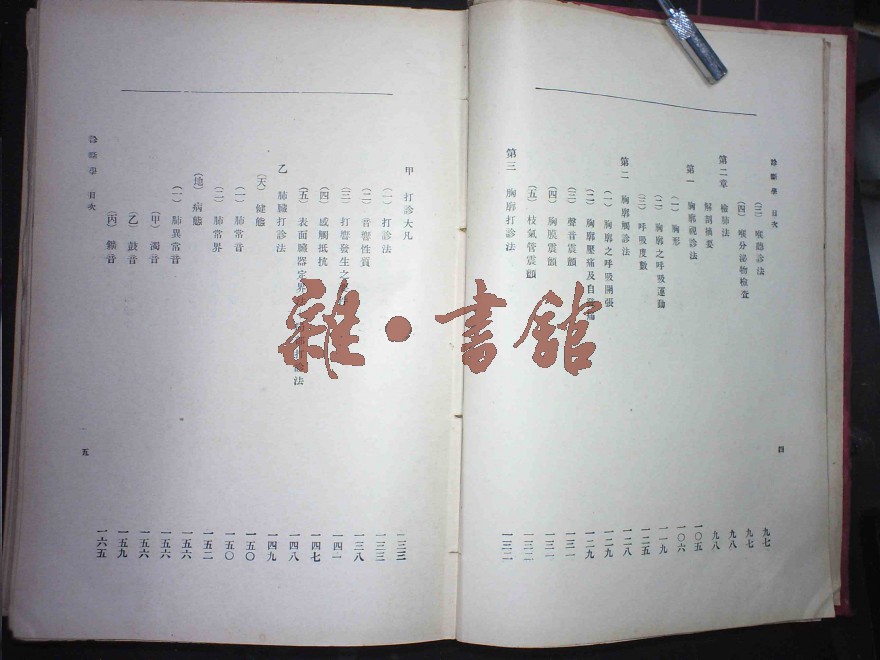 診斷學 目次
(三) 喉聽診法 九七
(四) 喉分泌物檢查 九七
第二章 檢肺法 九八
解剖摘要 九八
第一 胸廓視診法 一〇五
(一) 胸形 一〇六
(二) 胸廓之呼吸運動 一一九
(三) 呼吸度數 一二五
第二 胸廓觸診法 一二八
(一) 胸廓之呼吸開張 一二九
(二) 胸廓壓痛及自 痛 一二九
(三) 聲音震顫 一三一
(四) 胸膜震顫 一三一
(五) 枝氣管震顫 一三二
第三 胸廓打診法 一三二
四
甲 打診大凡 一三三
(一) 打診法 一三三
(二) 音響性質 一三八
(三) 打響發生之 一四一
(四) 感觸抵抗 一四七
(五) 表面臟器定界 診法 一四八
乙 肺臟打診法 一四九
(天) 健態 一五〇
(一) 肺常音 一五〇
(二) 肺常界 一五二
(地) 病態 一五六
(一) 肺異常音 一五六
(甲) 濁音 一五六
(乙) 鼓音 一五九
(丙) 鑛音 一六五
診斷學 目次
五
雜·書館